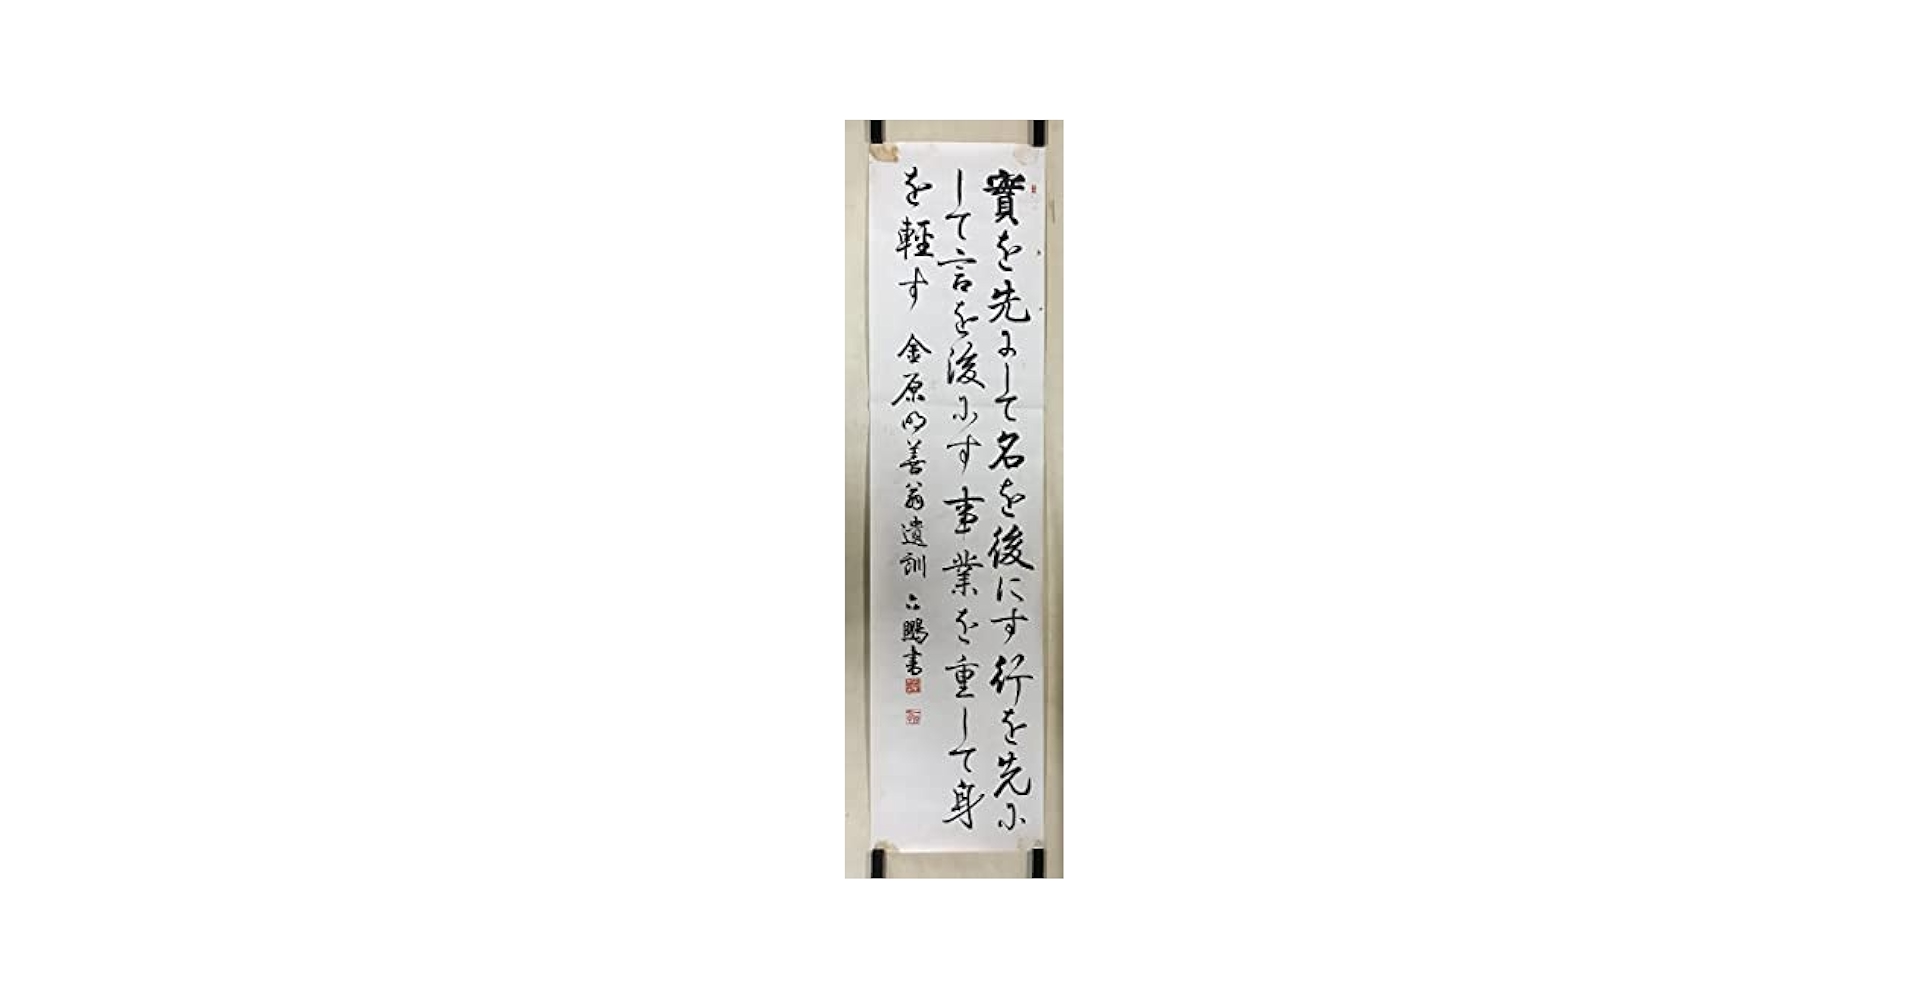 實を先にして名を後にす行を先に
して言を後にす事業を重して身
を輕す 金原明善翁遺訓 六鵬書